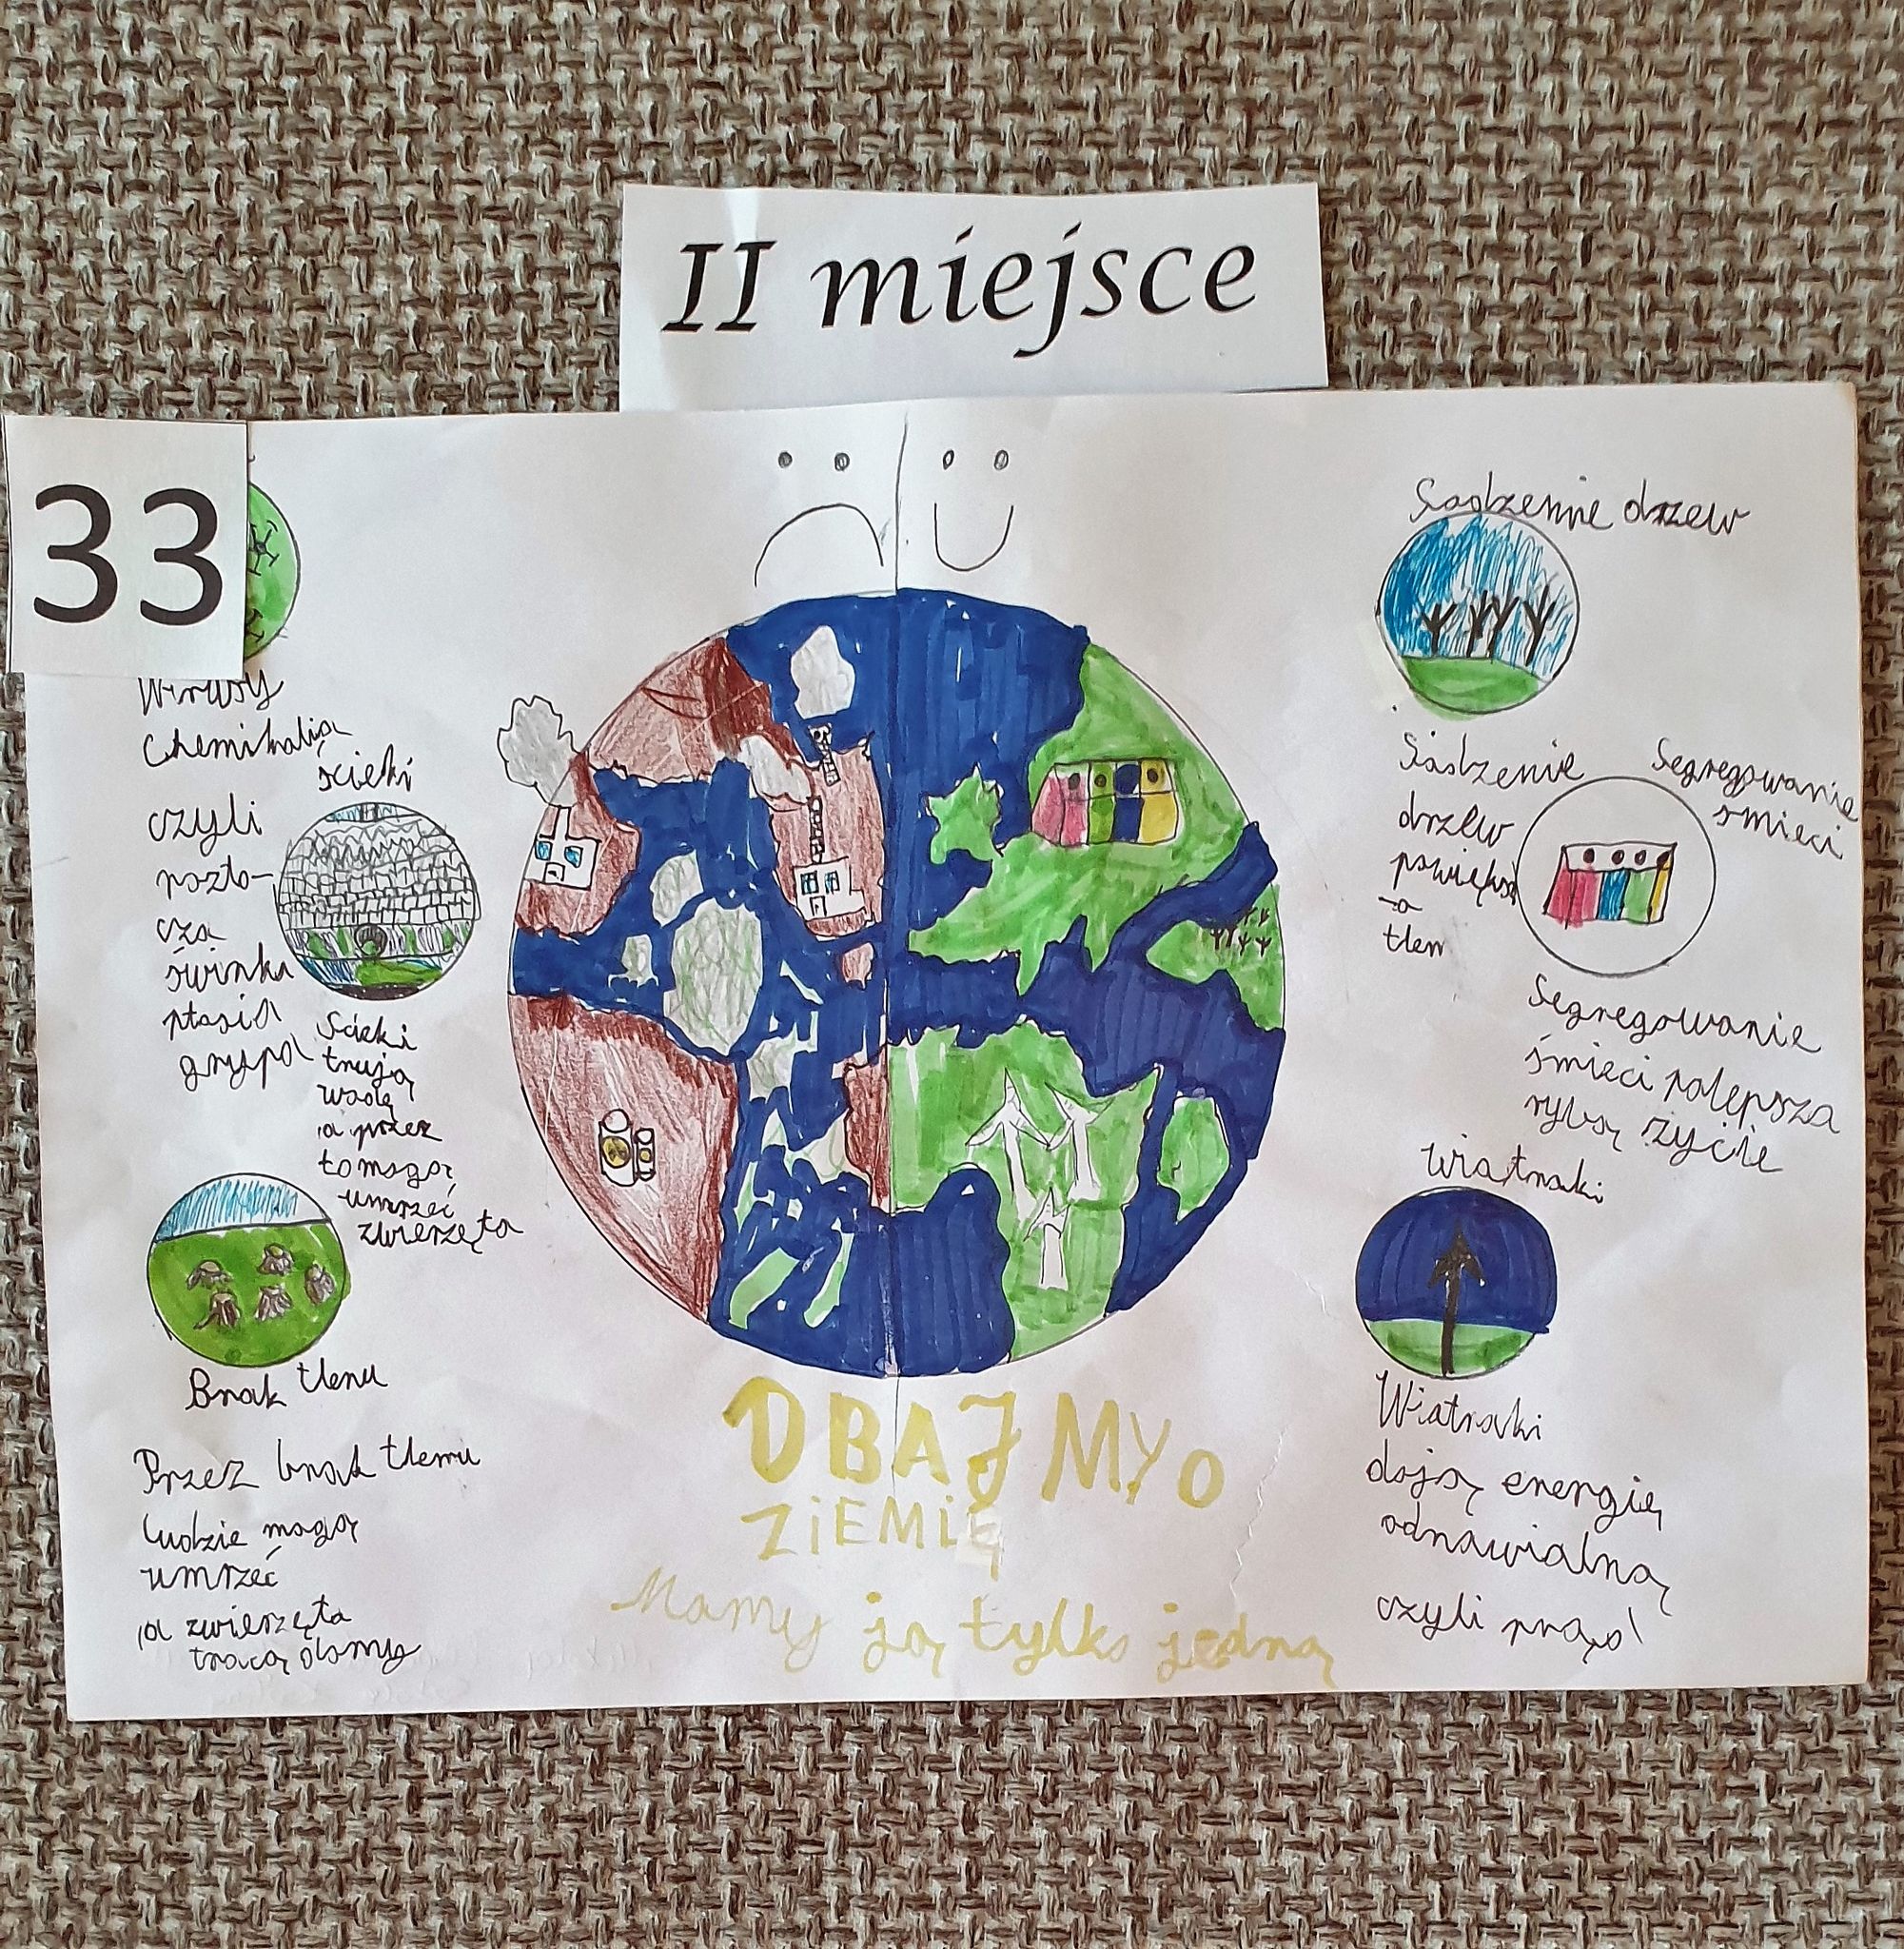 II miejsce
33
Wirusy
Chemikalia
czyli
rozto-
cza
świnka
ptasia
grypa
ścieki
Ścieki
trują
wodę
a przez
to mogą
umrzeć
zwierzęta
Brak tlenu
Przez brak tlenu
ludzie mogą
umrzeć
a zwierzęta
tracą domy
DBAJMY O
ZIEMIĘ
Mamy ją tylko jedną
Sadzenie drzew
Sadzenie
drzew
powiększ
-a
tlen
Segregowanie
śmieci
Segregowanie
śmieci polepsza
rybą życie
Wiatraki
Wiatraki
dają energię
odnawialną
czyli prąd